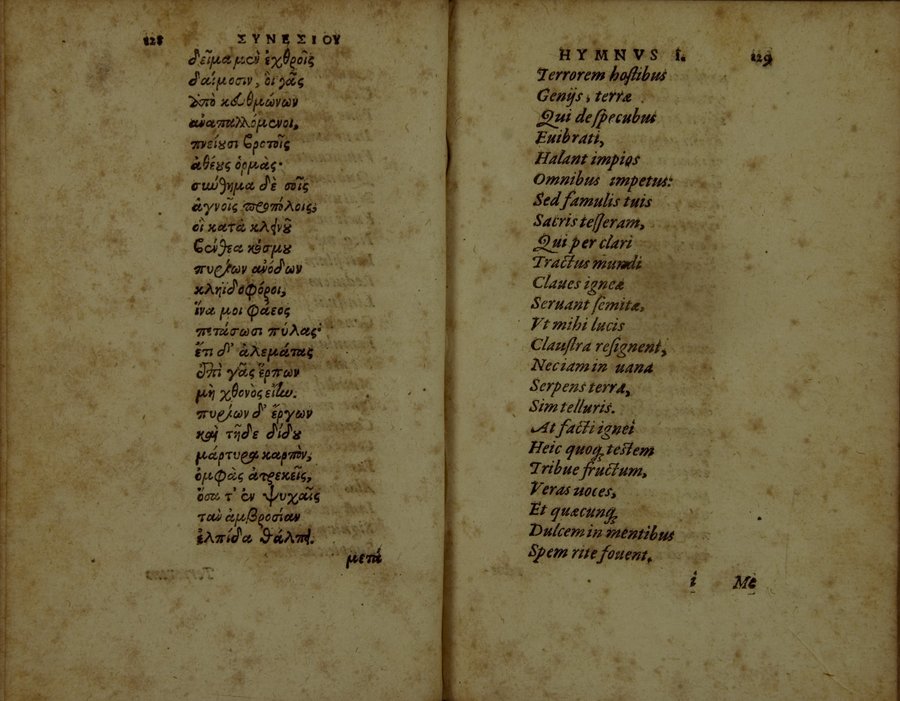 128 ΣΥΝΕΣΙΟΥ
δεῖμα μὲν ἐχθροῖς
δαίμοσιν, οἱ γᾶς
ὑπὸ κευθμώνων
ἀναπαλλόμενοι,
πνείουσι βροτοῖς
ἀθέους ὁρμάς·
σύνθημα δὲ τοῖς
ἁγνοῖς προπόλοις,
οἳ κατὰ κλεινοῦ
βένθεα κόσμου
πυρίων ἀνόδων
κληϊδοφόροι,
ἵνα μοι φάεος
πετάσωσι πύλας·
ἔτι δ' ἀλεμάτας
ἐπὶ γᾶς ἕρπων
μὴ χθονὸς εἴην.
πυρίων δ' ἔργων
καὶ τῇδε δίδου
μάρτυρα καρπὸν,
ὀμφὰς ἀτρεκεῖς,
ὅσα τ' ἐν ψυχαῖς
τὰν ἀμβροσίαν
ἐλπίδα θάλπει.
μετά
HYMNVS I. 129
Terrorem hostibus
Genijs, terræ
Qui de specubus
Euibrati,
Halant impios
Omnibus impetus:
Sed famulis tuis
Sacris tesseram,
Qui per clari
Tractus mundi
Claues igneæ
Seruant semitæ,
Vt mihi lucis
Claustra resignent,
Nec iam in uana
Serpens terra,
Sim telluris.
At facti ignei
Heic quoq; testem
Tribue fructum,
Veras uoces,
Et quæcunq;
Dulcem in mentibus
Spem rite fouent.
i Me